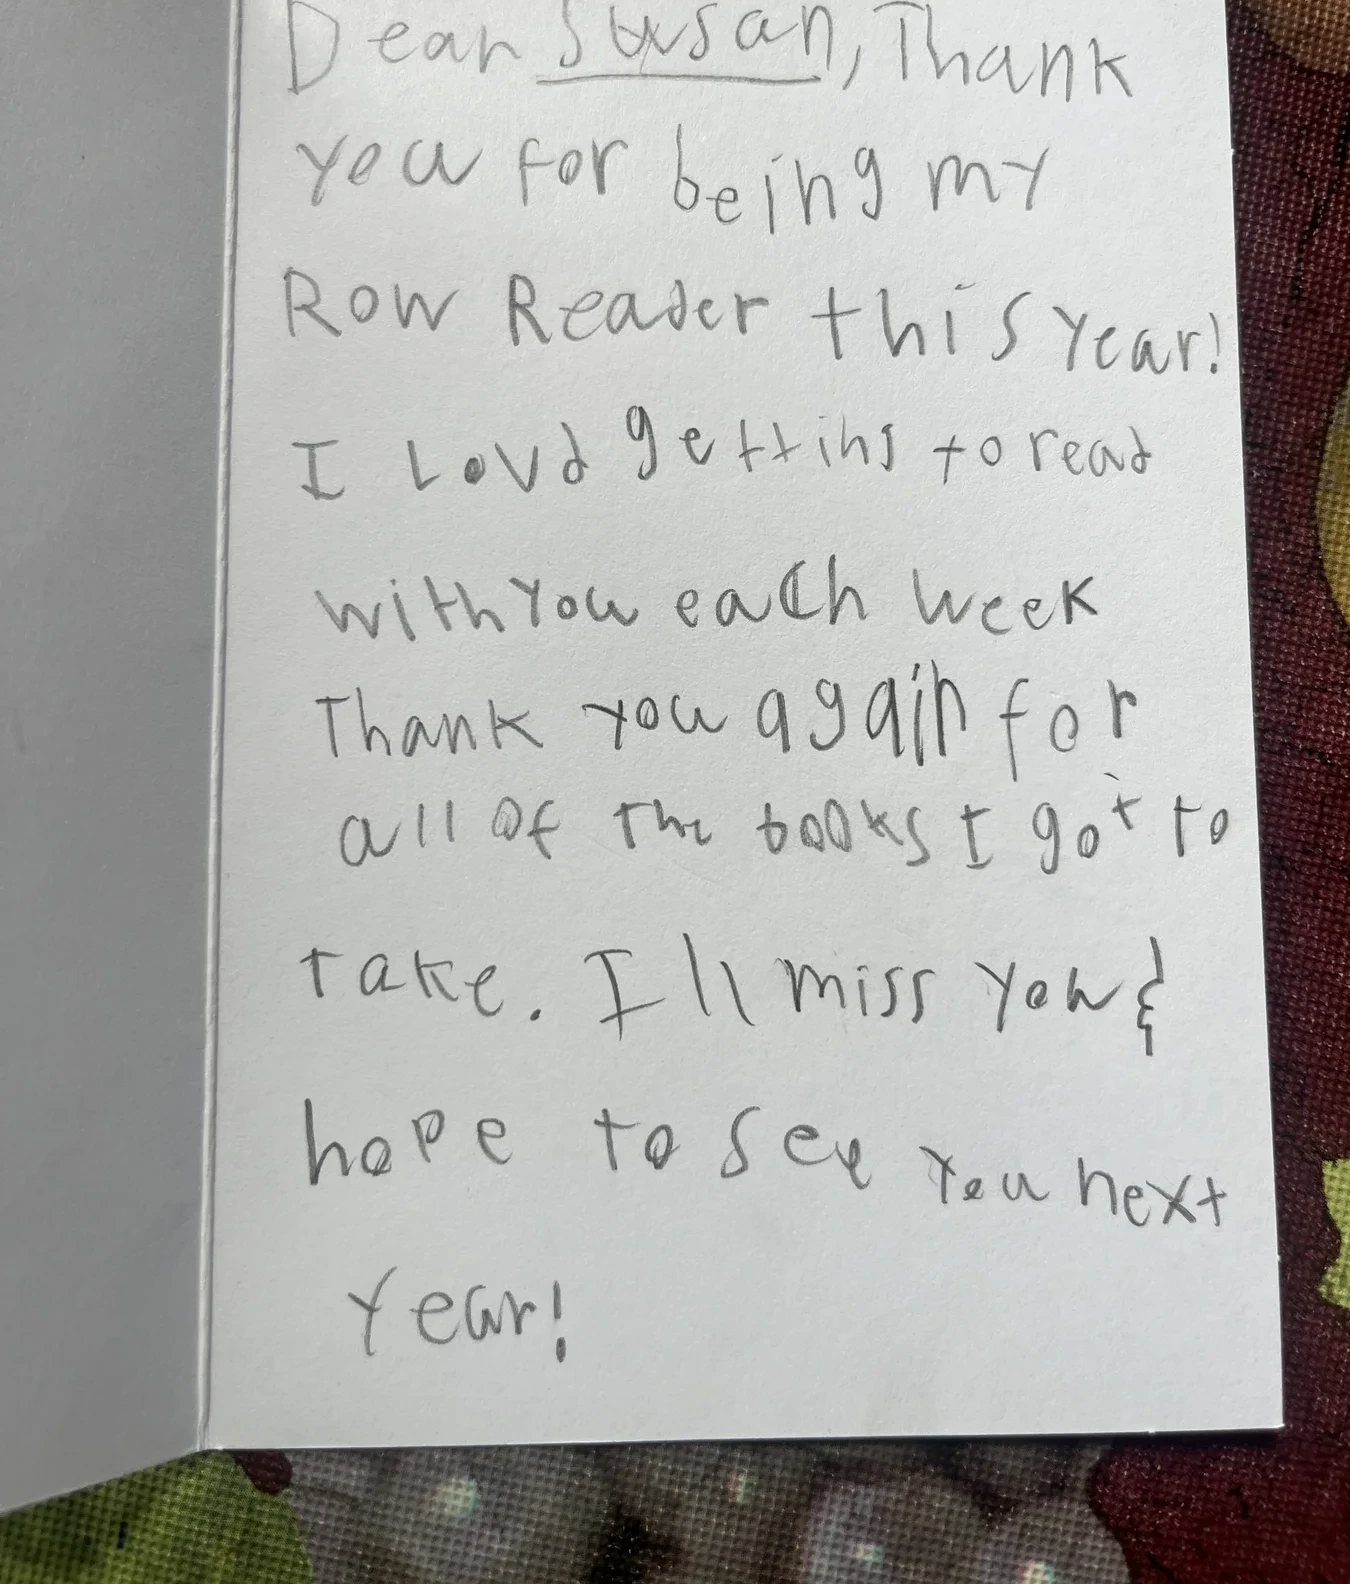 Dear Susan, Thank
you for being my
Row Reader this year!
I Lovd getting to read
with you each week
Thank you again for
all of the books I got to
take. I ll miss you &
hope to see you next
year!